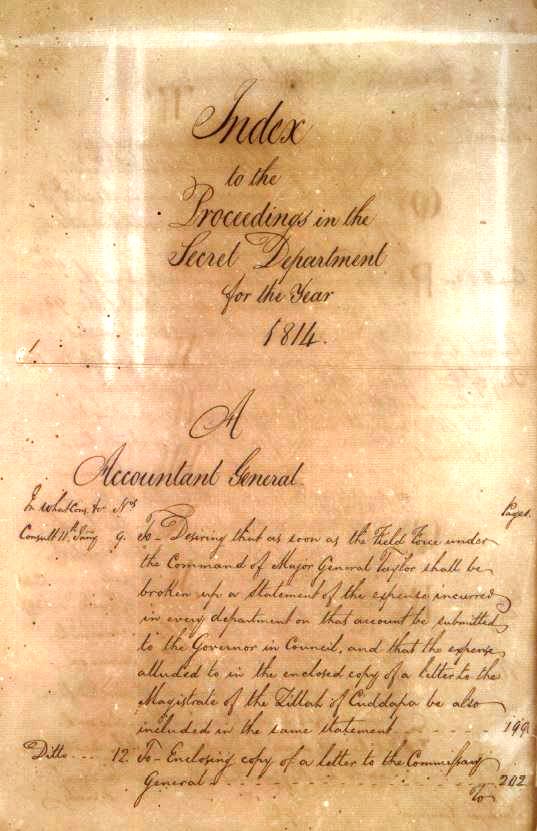 Index
to the
Proceedings in the
Secret Department
for the Year
1814.
A
Accountant General.
In what Cons. &c Nos Pages.
Consult 11th Jany 9. To - Desiring that as soon as the Field Force under
the Command of Major General Taylor shall be
broken up a statement of the expense incurred
in every department on that account be submitted
to the Governor in Council, and that the expense
alluded to in the enclosed copy of a letter to the
Magistrate of the Zillah of Cuddapa be also
included in the same statement 199
Ditto 12 To - Enclosing copy of a letter to the Commissary
General 202
To